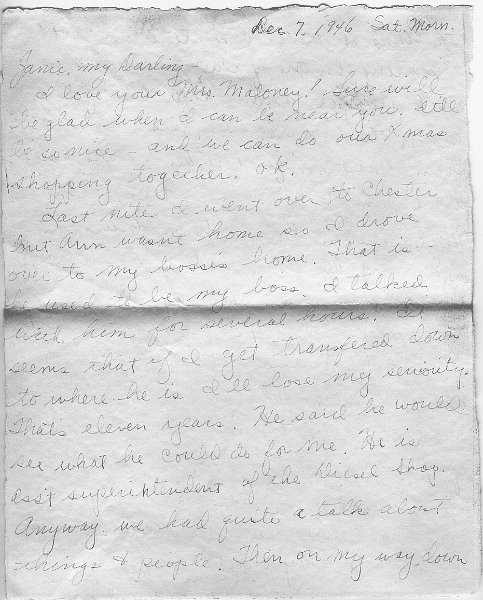 Dec. 7, 1946 Sat. Morn.
Janie, my Darling -
I love you "Mrs. Maloney"! Sure will
be glad when I can be near you. It'll
be so nice - and we can do our Xmas
shopping together. OK.
Last nite I went over to Chester
but Ann wasn't home so I drove
over to my bosses home. That is
he used to be my boss. I talked
with him for several hours. It
seems that if I get transfered down
to where he is I'll lose my seriority.
That's eleven years. He said he would
see what he could do for me. He is
Ass't superintendent of the Diesel Shop.
Anyway we had quite a talk about
things & people. Then on my way down